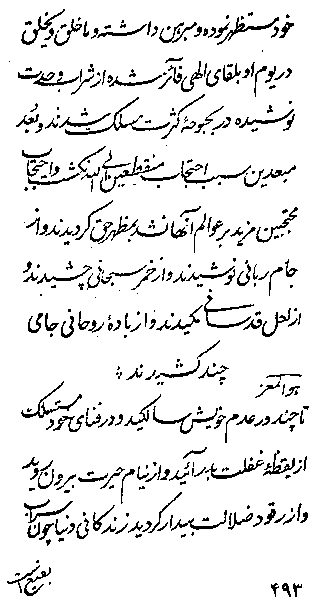 خود مستظهر نوده و مبرهن داشته و ما خلق و یخلق
در یوم او بلقای الهی فائز شده از شراب وحدت
نوشیده در بحبوحهٔ کثرت سلک شدند و بعد
مبعدین سبب احتجاب منقطعین الی الله نکشت و احتجاب
محتجبین مزید بر عوالم آنها نشد بمظهر حق کردیدند و از
جام ربانی نوشیدند و از خمر سبحانی چشیدند و
از لعل قدسانی مکیدند و از بادهٔ روحانی جامی
چند کشیدند
هو المعز
تا چند در عدم خویش سالکید و در فنای خود مستهلک
از یقظهٔ غفلت بدر آئید و از نیام حیرت بیرون روید
و از رقود ضلالت بیدار کردید زندکانی دنیا چون سراب
بقیع است
۴۹۳